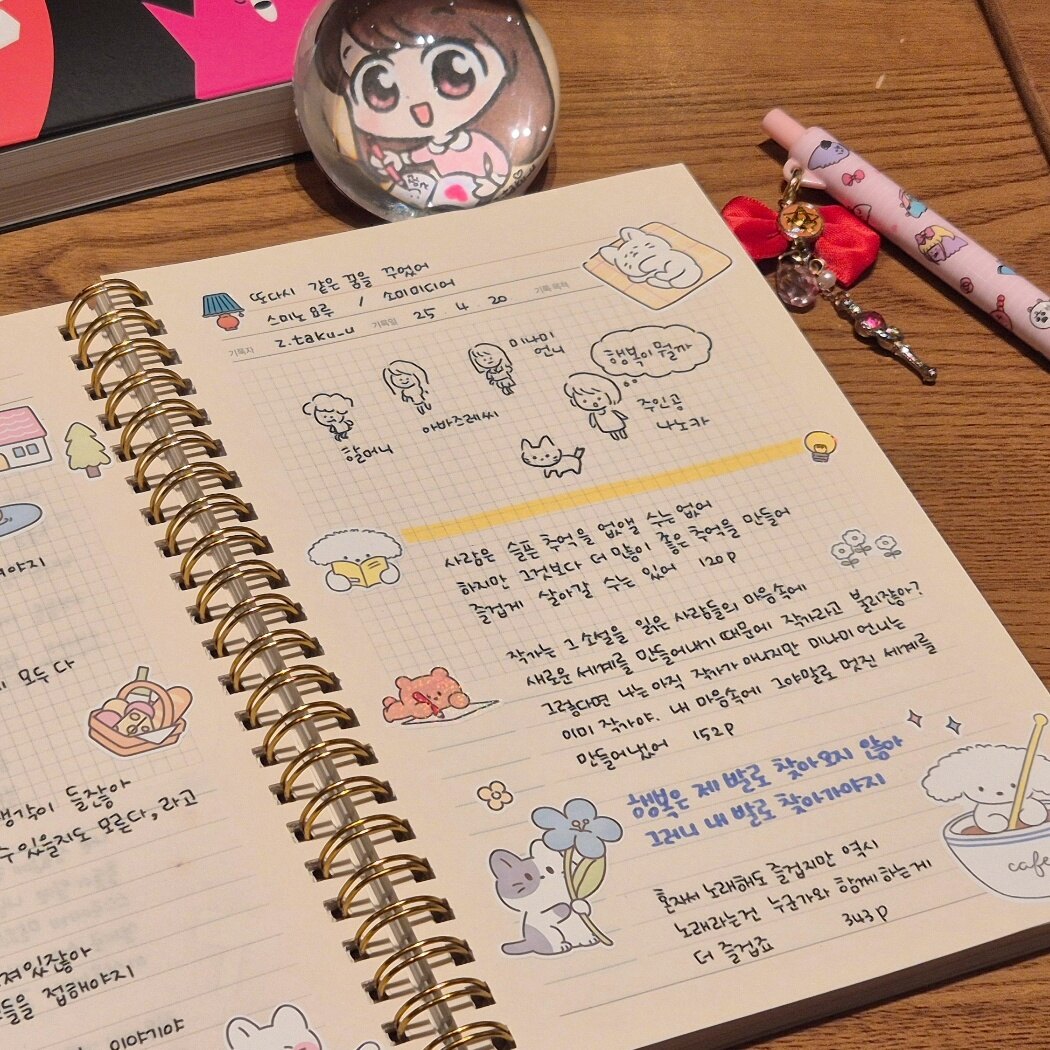 모두 다
생각이 들잖아
수 있을지도 모른다, 라고
져있잖아
들을 접해야지
이야기야
또다시 같은 꿈을 꾸었어
스미노 요루 / 소미미디어
기록자 z.taku_u 기록일 25 4 20 기록 목적
할머니
아바즈레씨
미나미
언니
행복이 뭘까
주인공
나노카
사람은 슬픈 추억을 없앨 수는 없어
하지만 그것보다 더 많이 좋은 추억을 만들어
즐겁게 살아갈 수는 있어 120p
작가는 그 소설을 읽은 사람들의 마음속에
새로운 세계를 만들어내기 때문에 작가라고 불리잖아?
그렇다면 나는 아직 작가가 아니지만 미나미 언니는
이미 작가야. 내 마음속에 그야말로 멋진 세계를
만들어냈어 152p
행복은 제 발로 찾아오지 않아
그러니 내 발로 찾아가야지
혼자서 노래해도 즐겁지만 역시
노래라는건 누군가와 함께 하는게
더 즐겁죠 343p
cafe